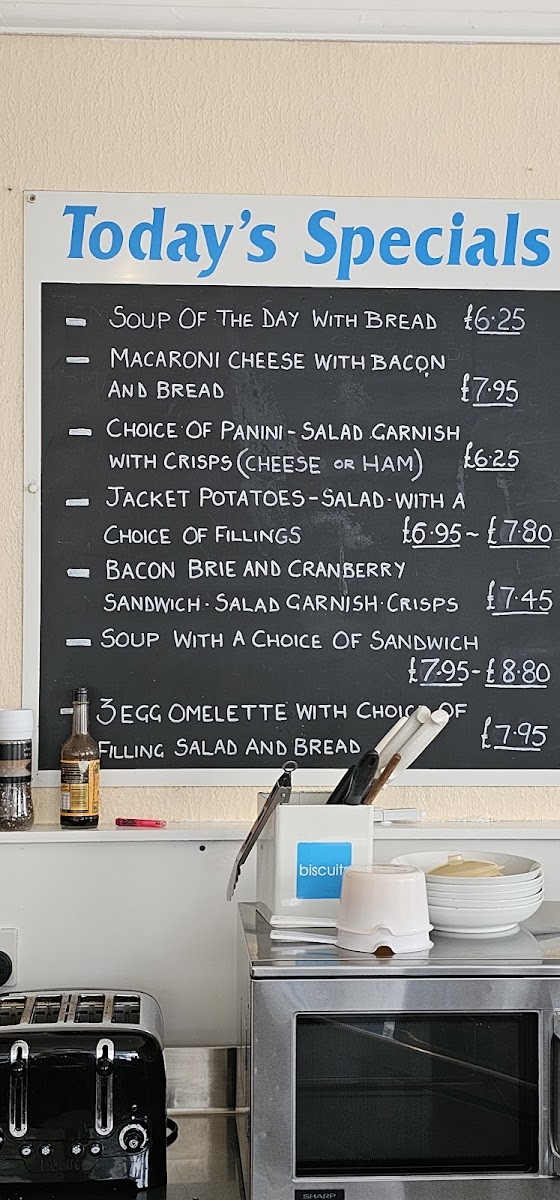 Today's Specials
- SOUP OF THE DAY WITH BREAD £6.25
- MACARONI CHEESE WITH BACON
AND BREAD £7.95
- CHOICE OF PANINI - SALAD GARNISH
WITH CRISPS (CHEESE OR HAM) £6.25
- JACKET POTATOES - SALAD · WITH A
CHOICE OF FILLINGS £6.95 ~ £7.80
- BACON BRIE AND CRANBERRY
SANDWICH · SALAD GARNISH · CRISPS £7.45
- SOUP WITH A CHOICE OF SANDWICH
£7.95 - £8.80
- 3 EGG OMELETTE WITH CHOICE OF
FILLING SALAD AND BREAD £7.95
biscuits
Dualit
SHARP